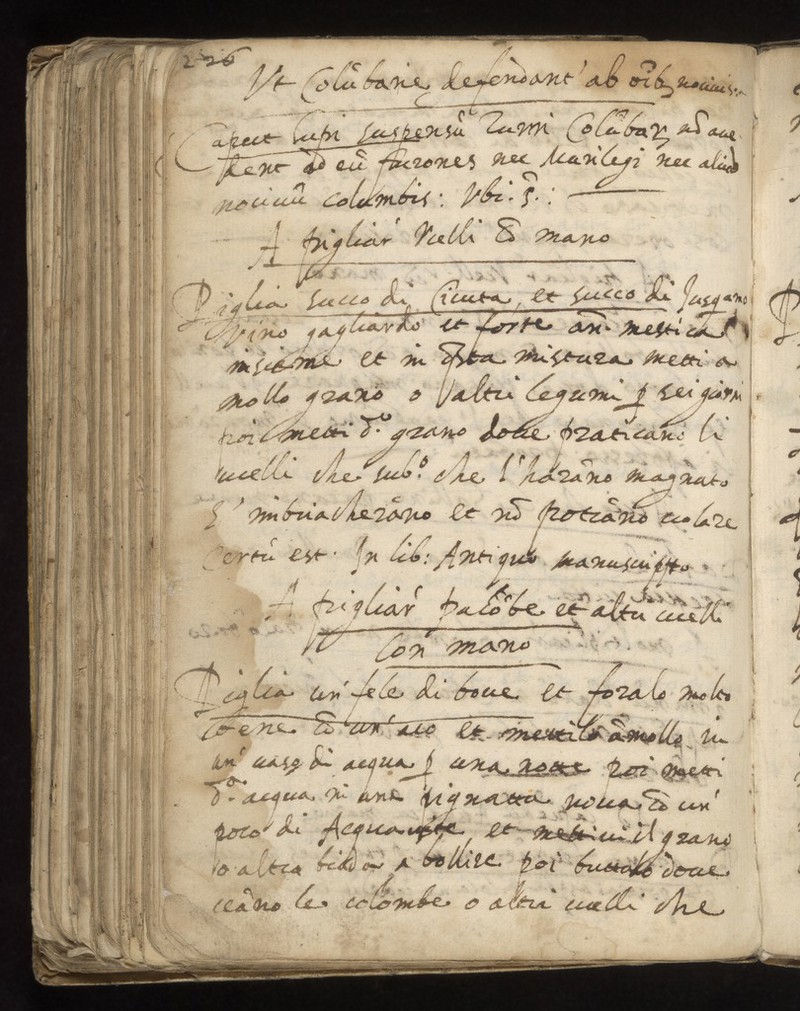 226
Ut Colũbarie defendant' ab oĩb nociuis
Caput lupi suspensũ Turri Colũbar nõ acce
dent ad eũ furones nec Murilegi nec aliud
nociuũ columbis: Ubi. s.:
A pigliar' Ucelli cõ mano
Piglia succo di Cicuta, et succo di Jusqamo
Vino gagliardo et forte añ mestica
insieme et in q̃sta mistura metti a
mollo grano o altri legumi p sei giorni
poi metti d.º grano doue praticano li
ucelli che sub.º che l'harãno magnato
s' imbriacherãno et nõ potrãno uolare
Certũ est. In lib: Antiquo manuscritto
A pigliar' palõbe et altri ucelli
Con mano
Piglia un' fele di boue et foralo molto
bene cõ un' aco et mettilo à mollo in
un' uaso di acqua p una notte poi metti
d.ª acqua in una pignatta noua cõ un'
poco di Acqua uite et mettiui il grano
o altra biada a bollire poi buttalo doue
ueãno le colombe o altri ucelli che